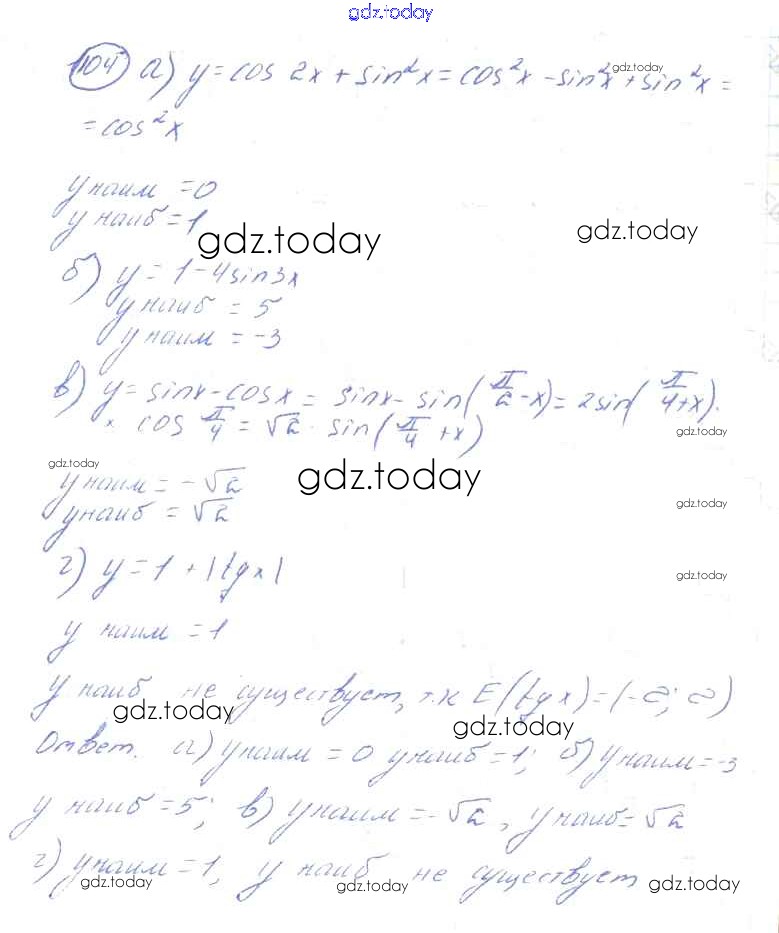 gdz.today
104 а) y = cos 2x + sin²x = cos²x - sin²x + sin²x =
gdz.today
= cos²x
y наим = 0
y наиб = 1
gdz.today
gdz.today
б) y = 1 - 4sin3x
y наиб = 5
y наим = -3
в) y = sinx - cosx = sinx - sin(π/2 - x) = 2sin(π/4 + x).
× cos π/4 = √2 · sin(π/4 + x)
gdz.today
gdz.today
gdz.today
y наим = -√2
y наиб = √2
gdz.today
г) y = 1 + |tgx|
gdz.today
y наим = 1
y наиб не существует, т.к E(tgx) = (-∞; ∞)
gdz.today
gdz.today
Ответ. а) y наим = 0 y наиб = 1; б) y наим = -3
y наиб = 5; в) y наим = -√2, y наиб = √2
г) y наим = 1, y наиб не существует
gdz.today
gdz.today
gdz.today